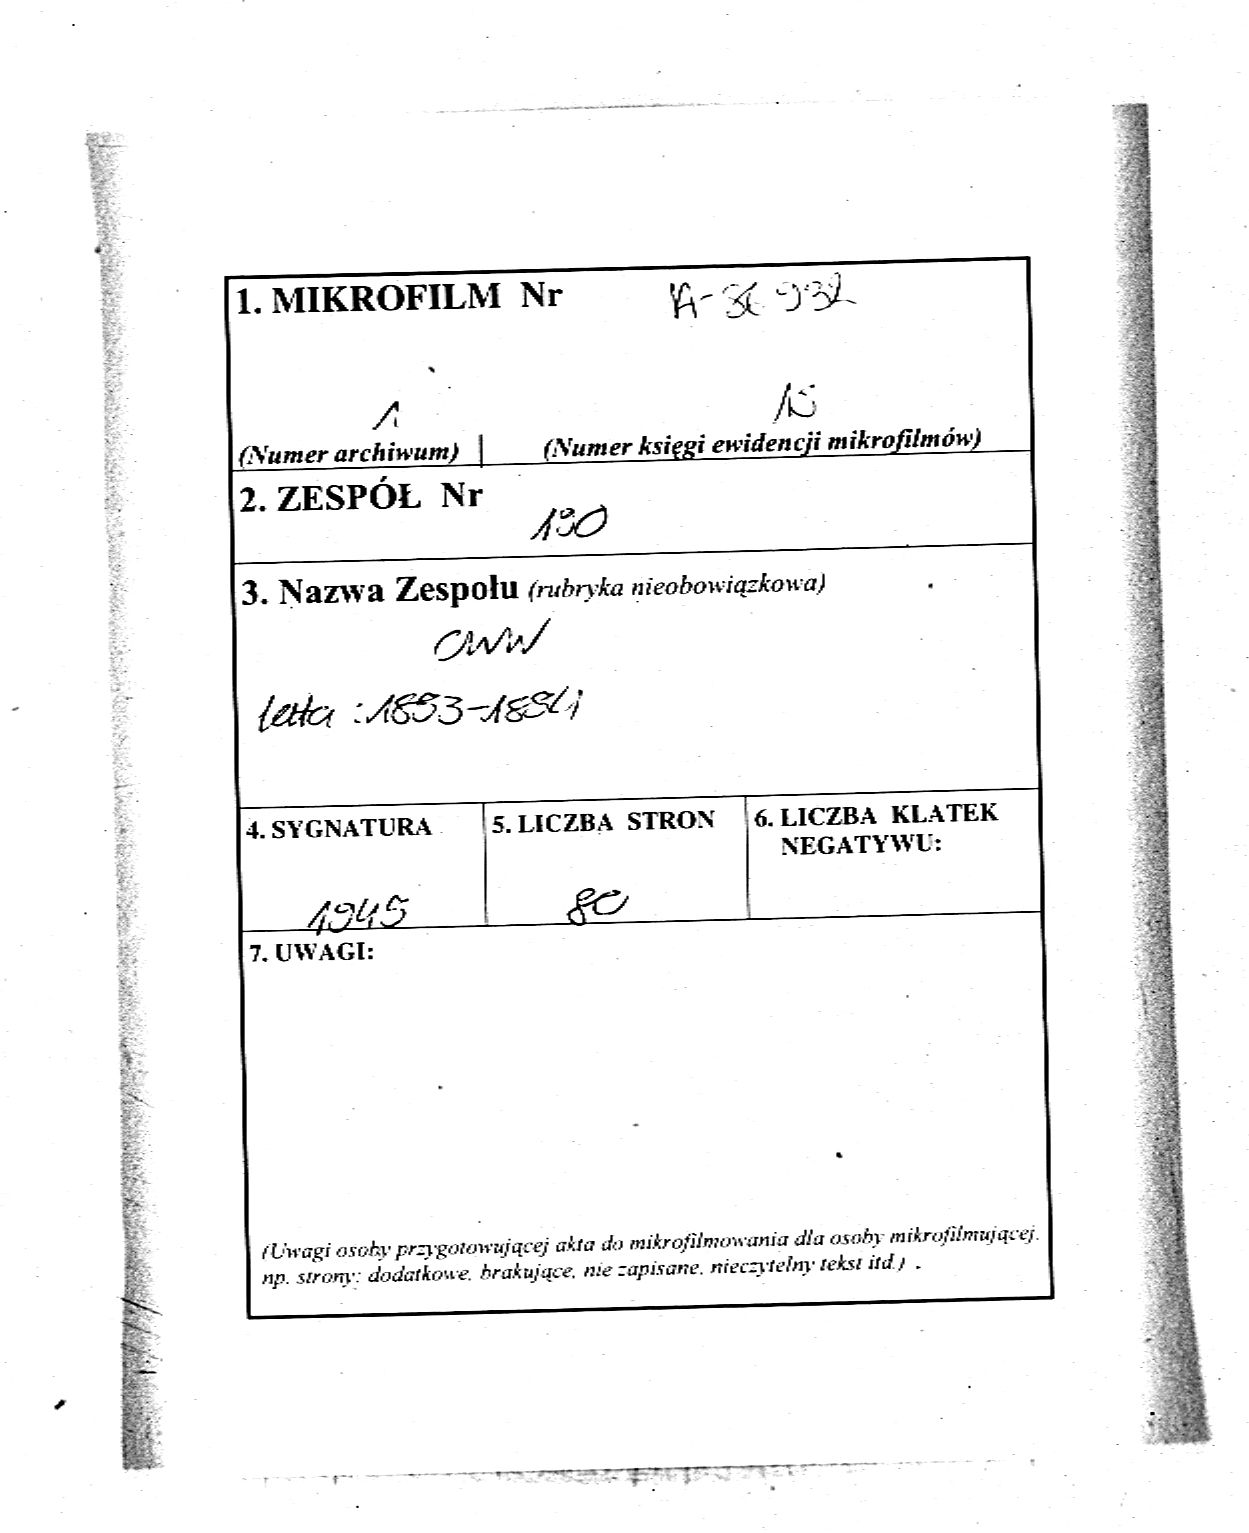 1. MIKROFILM Nr
1
(Numer archiwum) (Numer księgi ewidencji mikrofilmów)
2. ZESPÓŁ Nr
190
3. Nazwa Zespołu (rubryka nieobowiązkowa)
CWW
lata : 1893-1894
4. SYGNATURA 5. LICZBA STRON 6. LICZBA KLATEK
NEGATYWU:
1945 80
7. UWAGI:
(Uwagi osoby przygotowującej akta do mikrofilmowania dla osoby mikrofilmującej.
np. strony: dodatkowe, brakujące, nie zapisane, nieczytelny tekst itd.) .